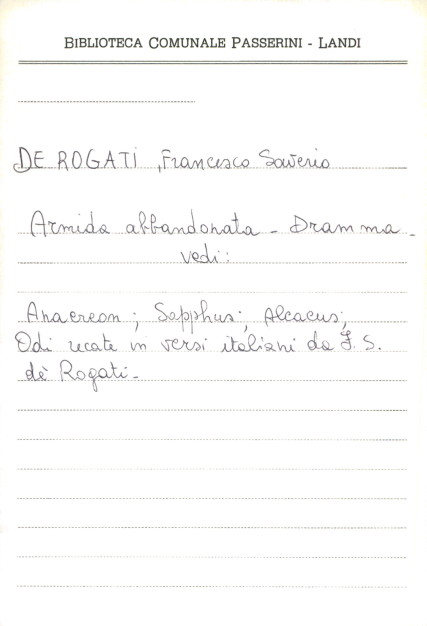 BIBLIOTECA COMUNALE PASSERINI - LANDI
DE ROGATI , Francesco Saverio
Armida abbandonata - Dramma -
vedi :
Anacreon ; Sapphus ; Alcaeus ;
Odi recate in versi italiani da F. S.
de' Rogati -